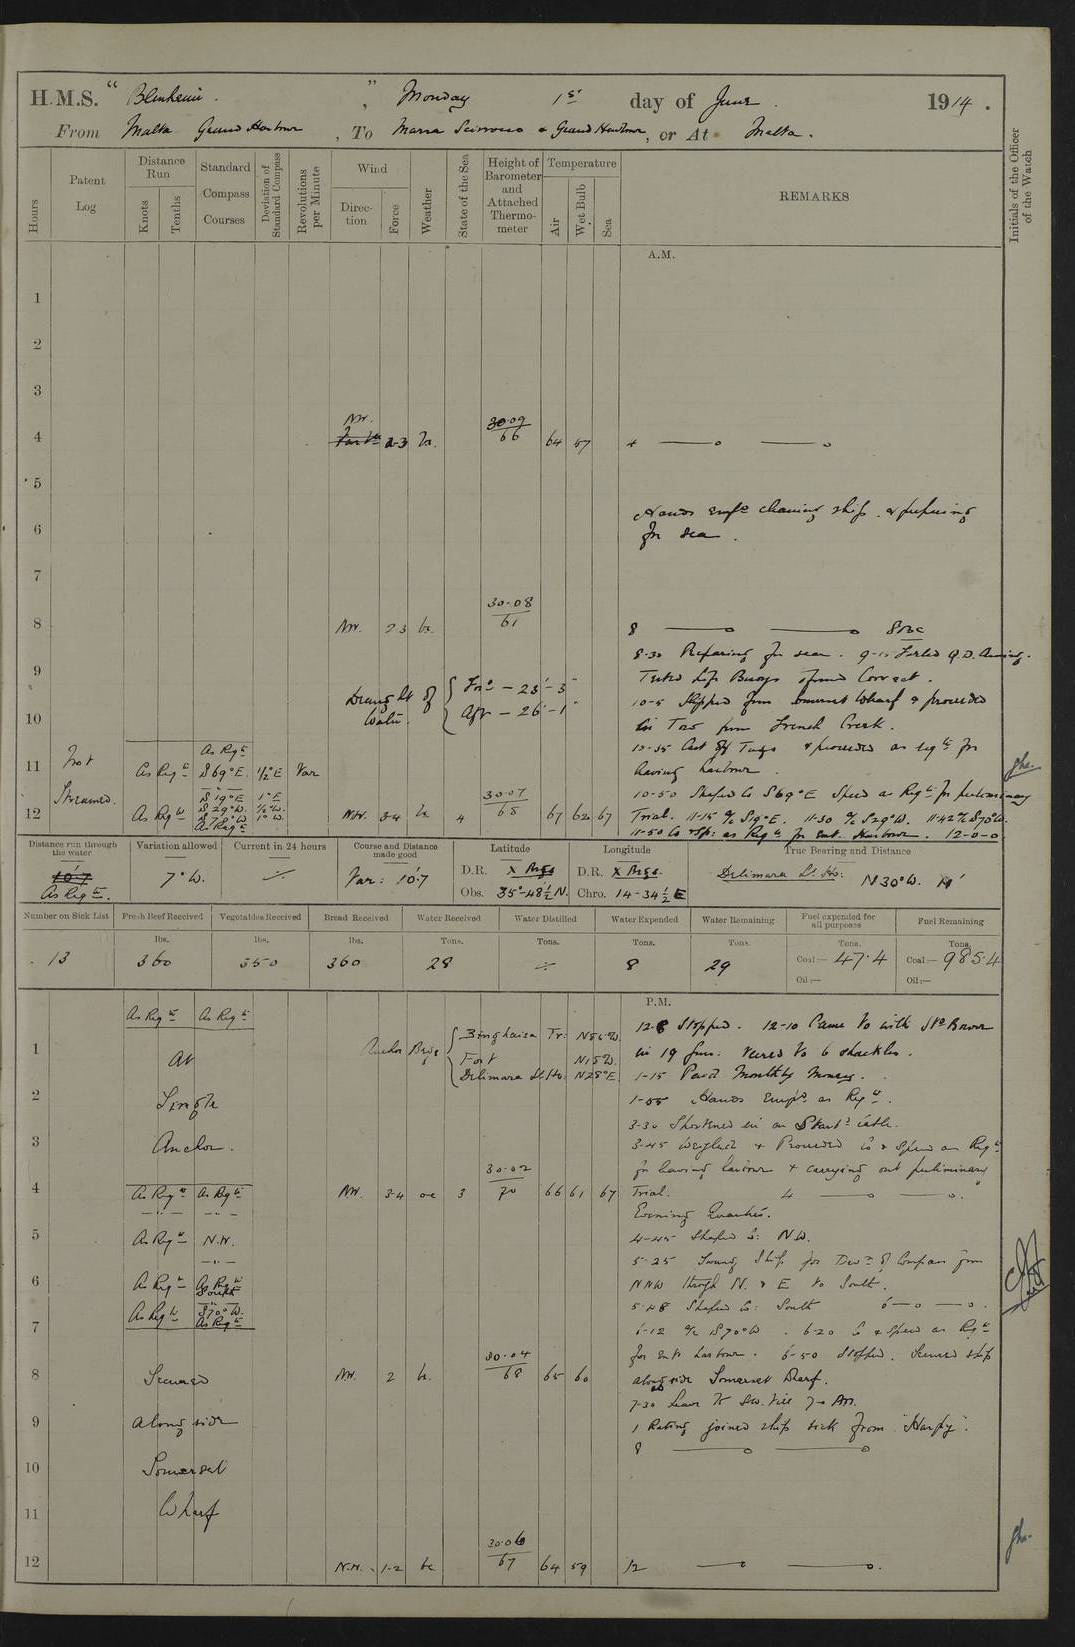 H.M.S. "Blenheim.", Monday 1st day of June. 1914.
From Malta Grand Harbour, To Marsa Scirrocco & Grand Harbour, or At Malta.
Hours
Patent Log
Distance Run
Knots
Tenths
Standard Compass Courses
Deviation of Standard Compass
Revolutions per Minute
Wind
Direction
Force
Weather
State of the Sea
Height of Barometer and Attached Thermometer
Temperature
Air
Wet Bulb
Sea
REMARKS
Initials of the Officer of the Watch
A.M.
1
2
3
4 NW. 2-3 bc. 30.09 66 64 57 4
5
Hands empd cleaning ship & preparing
6 for sea.
7
8 NW. 2 3 bc. 30.08 61 8 SBC
8-30 Preparing for sea. Furled Q.D. Awning.
9 Tested Life Buoys found Correct.
Draught of Water. Ford - 23'-3" Aft - 26'-1"
10-5 Slipped from Somerset Wharf & proceeded
10 in Tow from French Creek.
10-35 Cast off Tugs & proceeded as reqte for
11 Not As Reqte As Reqte S 69° E. 1/2° E Var leaving harbour.
Streamed. S 19° E 1° E 10-50 Shaped Co S 69° E Speed as Reqte for preliminary
12 As Reqte S 29° W. S 70° W As Reqte 1/2° W. 1° W. NW. 3-4 bc 4 30.07 68 67 62 67 Trial. 11-15 a/c S 19° E. 11-30 a/c S 29° W. 11-42 a/c S 70° W.
11-50 Co & Sp: as Reqte for Ent. Harbour. 12-0-0
Distance run through the water
10.7
As Reqte.
Variation allowed
7° W.
Current in 24 hours
Course and Distance made good
Var: 10.7
Latitude
D.R. X Brgs
Obs. 35°-48½ N.
Longitude
D.R. X Brgs.
Chro. 14-34½ E
True Bearing and Distance
Delimara Lt. Ho: N 30° W.
Number on Sick List
13
Fresh Beef Received
lbs.
360
Vegetables Received
lbs.
350
Bread Received
lbs.
360
Water Received
Tons.
28
Water Distilled
Tons.
Water Expended
Tons.
8
Water Remaining
Tons.
29
Fuel expended for all purposes
Tons.
Coal:— 47.4
Oil:—
Fuel Remaining
Tons.
Coal:— 985.4
Oil:—
P.M.
As Reqte As Reqte 12-8 Stopped. 12-10 Came to with Std Bower
1 At Anchor Brgs Binghaisa Tr: Fort N15W. Delimara Lt. Ho: N28°E in 19 fms. veered to 6 shackles.
1-15 Paid Monthly Money.
2 Single 1-55 Hands Empd as Reqte.
3-30 Shortened in on Starbd cable.
3 Anchor. 3-45 Weighed & Proceeded Co & Speed as Reqte
for leaving harbour & carrying out preliminary
4 As Reqte As Reqte NW. 3-4 oc 3 30.02 70 66 61 67 Trial. 4
Evening Quarters.
5 As Reqte N.W. 4-45 Shaped Co: NW.
5-25 Swung Ship for Devn of Compass from
6 As Reqte As Reqte South NNW through N. & E to South.
As Reqte S 70° W. As Reqte 5-48 Shaped Co: South 6
7 6-12 a/c S 70° W. 6-20 Co & Speed as Reqte
for ent. harbour. 6-50 Stopped. Secured ship
8 Secured NW. 2 bc. 30.04 68 65 60 alongside Somerset Wharf.
7-30 Leave to
9 alongside 1 Rating joined ship sick from "Harpy".
8
10 Somerset
11 Wharf
12 N.W. 1-2 bc 30.06 67 64 59 12